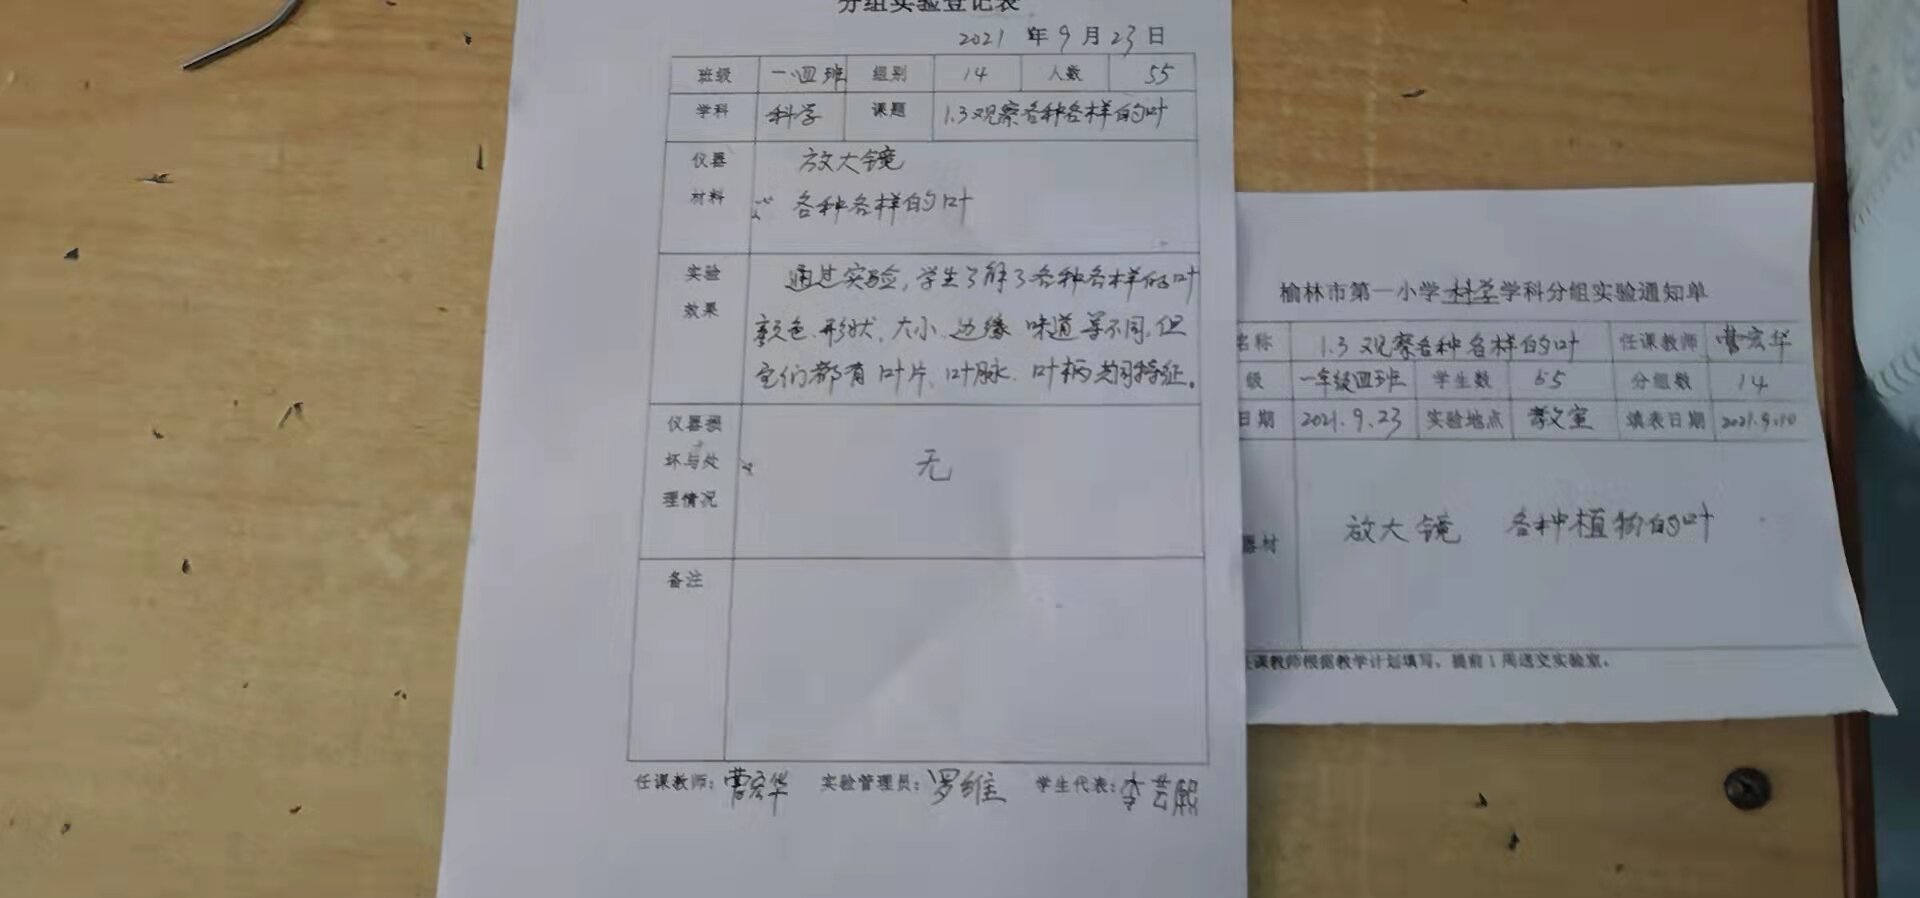 分组实验登记表
2021 年 9 月 23 日
班级 一.四班 组别 14 人数 55
学科 科学 课题 1.3观察各种各样的叶
仪器 放大镜
材料 各种各样的叶
实验 通过实验,学生了解了各种各样的叶
效果 颜色、形状、大小、边缘 味道等不同,但
它们都有叶片、叶脉、叶柄共同特征。
仪器损
坏与处 无
理情况
备注
任课教师: 曹宏华 实验管理员: 罗维 学生代表: 李芸熙
榆林市第一小学科学学科分组实验通知单
名称 1.3 观察各种各样的叶 任课教师 曹宏华
级 一年级四班 学生数 55 分组数 14
日期 2021.9.23 实验地点 填表日期 2021.9.10
器材 放大镜 各种植物的叶
任课教师根据教学计划填写,提前1周送交实验室。